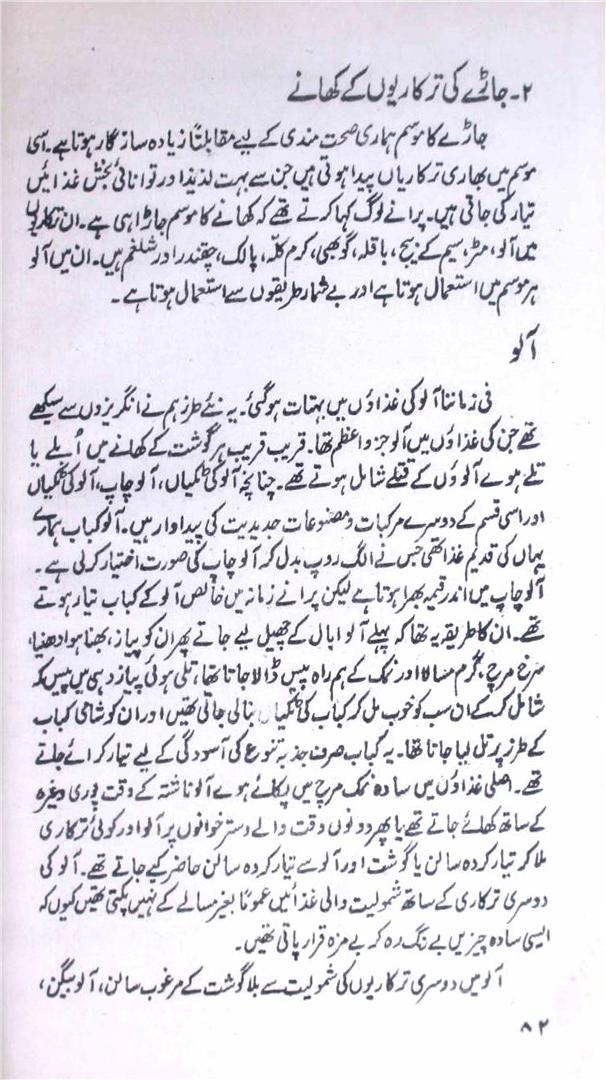 ۲۔ جاڑے کی ترکاریوں کے کھانے
جاڑے کا موسم ہماری صحت مندی کے لیے مقابلتاً زیادہ سازگار ہوتا ہے۔ اسی
موسم میں بھاری ترکاریاں پیدا ہوتی ہیں جن سے بہت لذیذ اور توانائی بخش غذائیں
تیار کی جاتی ہیں۔ پرانے لوگ کہا کرتے تھے کہ کھانے کا موسم جاڑا ہی ہے۔ ان ترکاریوں
میں آلو، مٹر، سیم کے بیج، باقلہ، گوبھی، کرم کلہ، پالک، چقندر اور شلغم ہیں۔ ان میں آلو
ہر موسم میں استعمال ہوتا ہے اور بے شمار طریقوں سے استعمال ہوتا ہے۔
آلو
فی زمانا آلو کی غذاؤں میں بہتات ہو گئی۔ یہ نئے طرز ہم نے انگریزوں سے سیکھے
تھے جن کی غذاؤں میں آلو جزو اعظم تھا۔ قریب قریب ہر گوشت کے کھانے میں اُبلے یا
تلے ہوے آلوؤں کے قتلے شامل ہوتے تھے۔ چنانچہ آلو کی ٹکیاں، آلو چاپ، آلو کی ٹکیاں
اور اسی قسم کے دوسرے مرکبات و مصنوعات جدیدیت کی پیداوار ہیں۔ آلو کباب ہمارے
یہاں کی قدیم غذا تھی جس نے الگ روپ بدل کر آلو چاپ کی صورت اختیار کر لی ہے۔
آلو چاپ میں اندر قیمہ بھرا ہوتا ہے لیکن پرانے زمانہ میں خالص آلو کے کباب تیار ہوتے
تھے۔ ان کا طریقہ یہ تھا کہ پہلے آلو ابال کے چھیل لیے جاتے پھر ان کو پیاز، بھنا ہوا دھنیا،
سرخ مرچ، گرم مسالا اور نمک کے ہم راہ پیس ڈالا جاتا تھا، تلی ہوئی پیاز دہی میں پیس کر
شامل کر کے ان سب کو خوب مل کر کباب کی ٹکیاں بنا لی جاتی تھیں اور ان کو شامی کباب
کے طرز پر تل لیا جاتا تھا۔ یہ کباب صرف جذبہ تنوع کی آسودگی کے لیے تیار کرائے جاتے
تھے۔ اصلی غذاؤں میں سادہ نمک مرچ میں پکائے ہوے آلو ناشتہ کے وقت پوری وغیرہ
کے ساتھ کھائے جاتے تھے یا پھر دونوں وقت والے دسترخوانوں پر آلو اور کوئی ترکاری
ملا کر تیار کردہ سالن یا گوشت اور آلو سے تیار کردہ سالن حاضر کیے جاتے تھے۔ آلو کی
دوسری ترکاری کے ساتھ شمولیت والی غذائیں عموماً بغیر مسالے کے نہیں پکتی تھیں کیوں کہ
ایسی سادہ چیزیں بے رنگ رہ کر بے مزہ قرار پاتی تھیں۔
آلو میں دوسری ترکاریوں کی شمولیت سے بلا گوشت کے مرغوب سالن، آلو بیگن،
۸۲